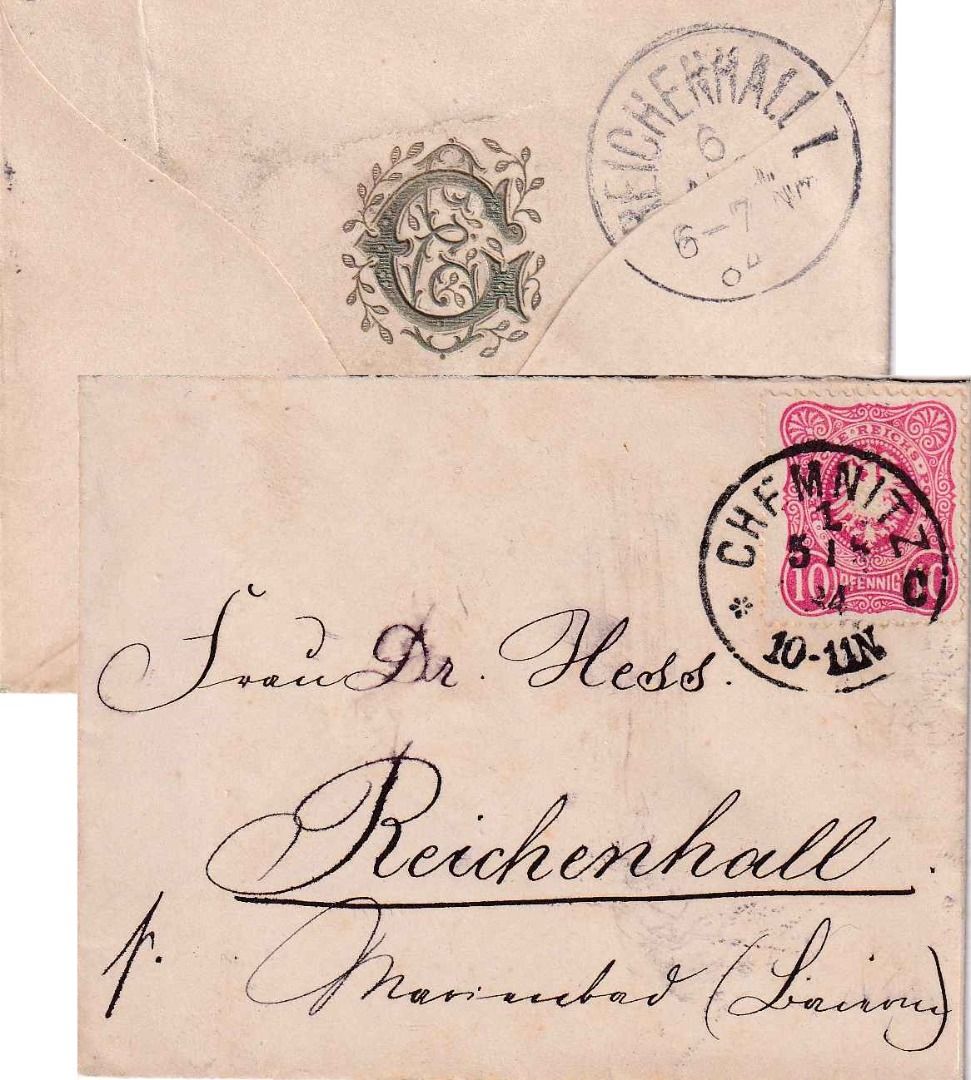 REICHENHALL I
6
6-7 NM
84
G
REICHS
CHEMNITZ
5 1
84
C
10-11N
10 PFENNIG
Frau Dr. Hess.
Reichenhall.
p. Marienbad (Baiern)